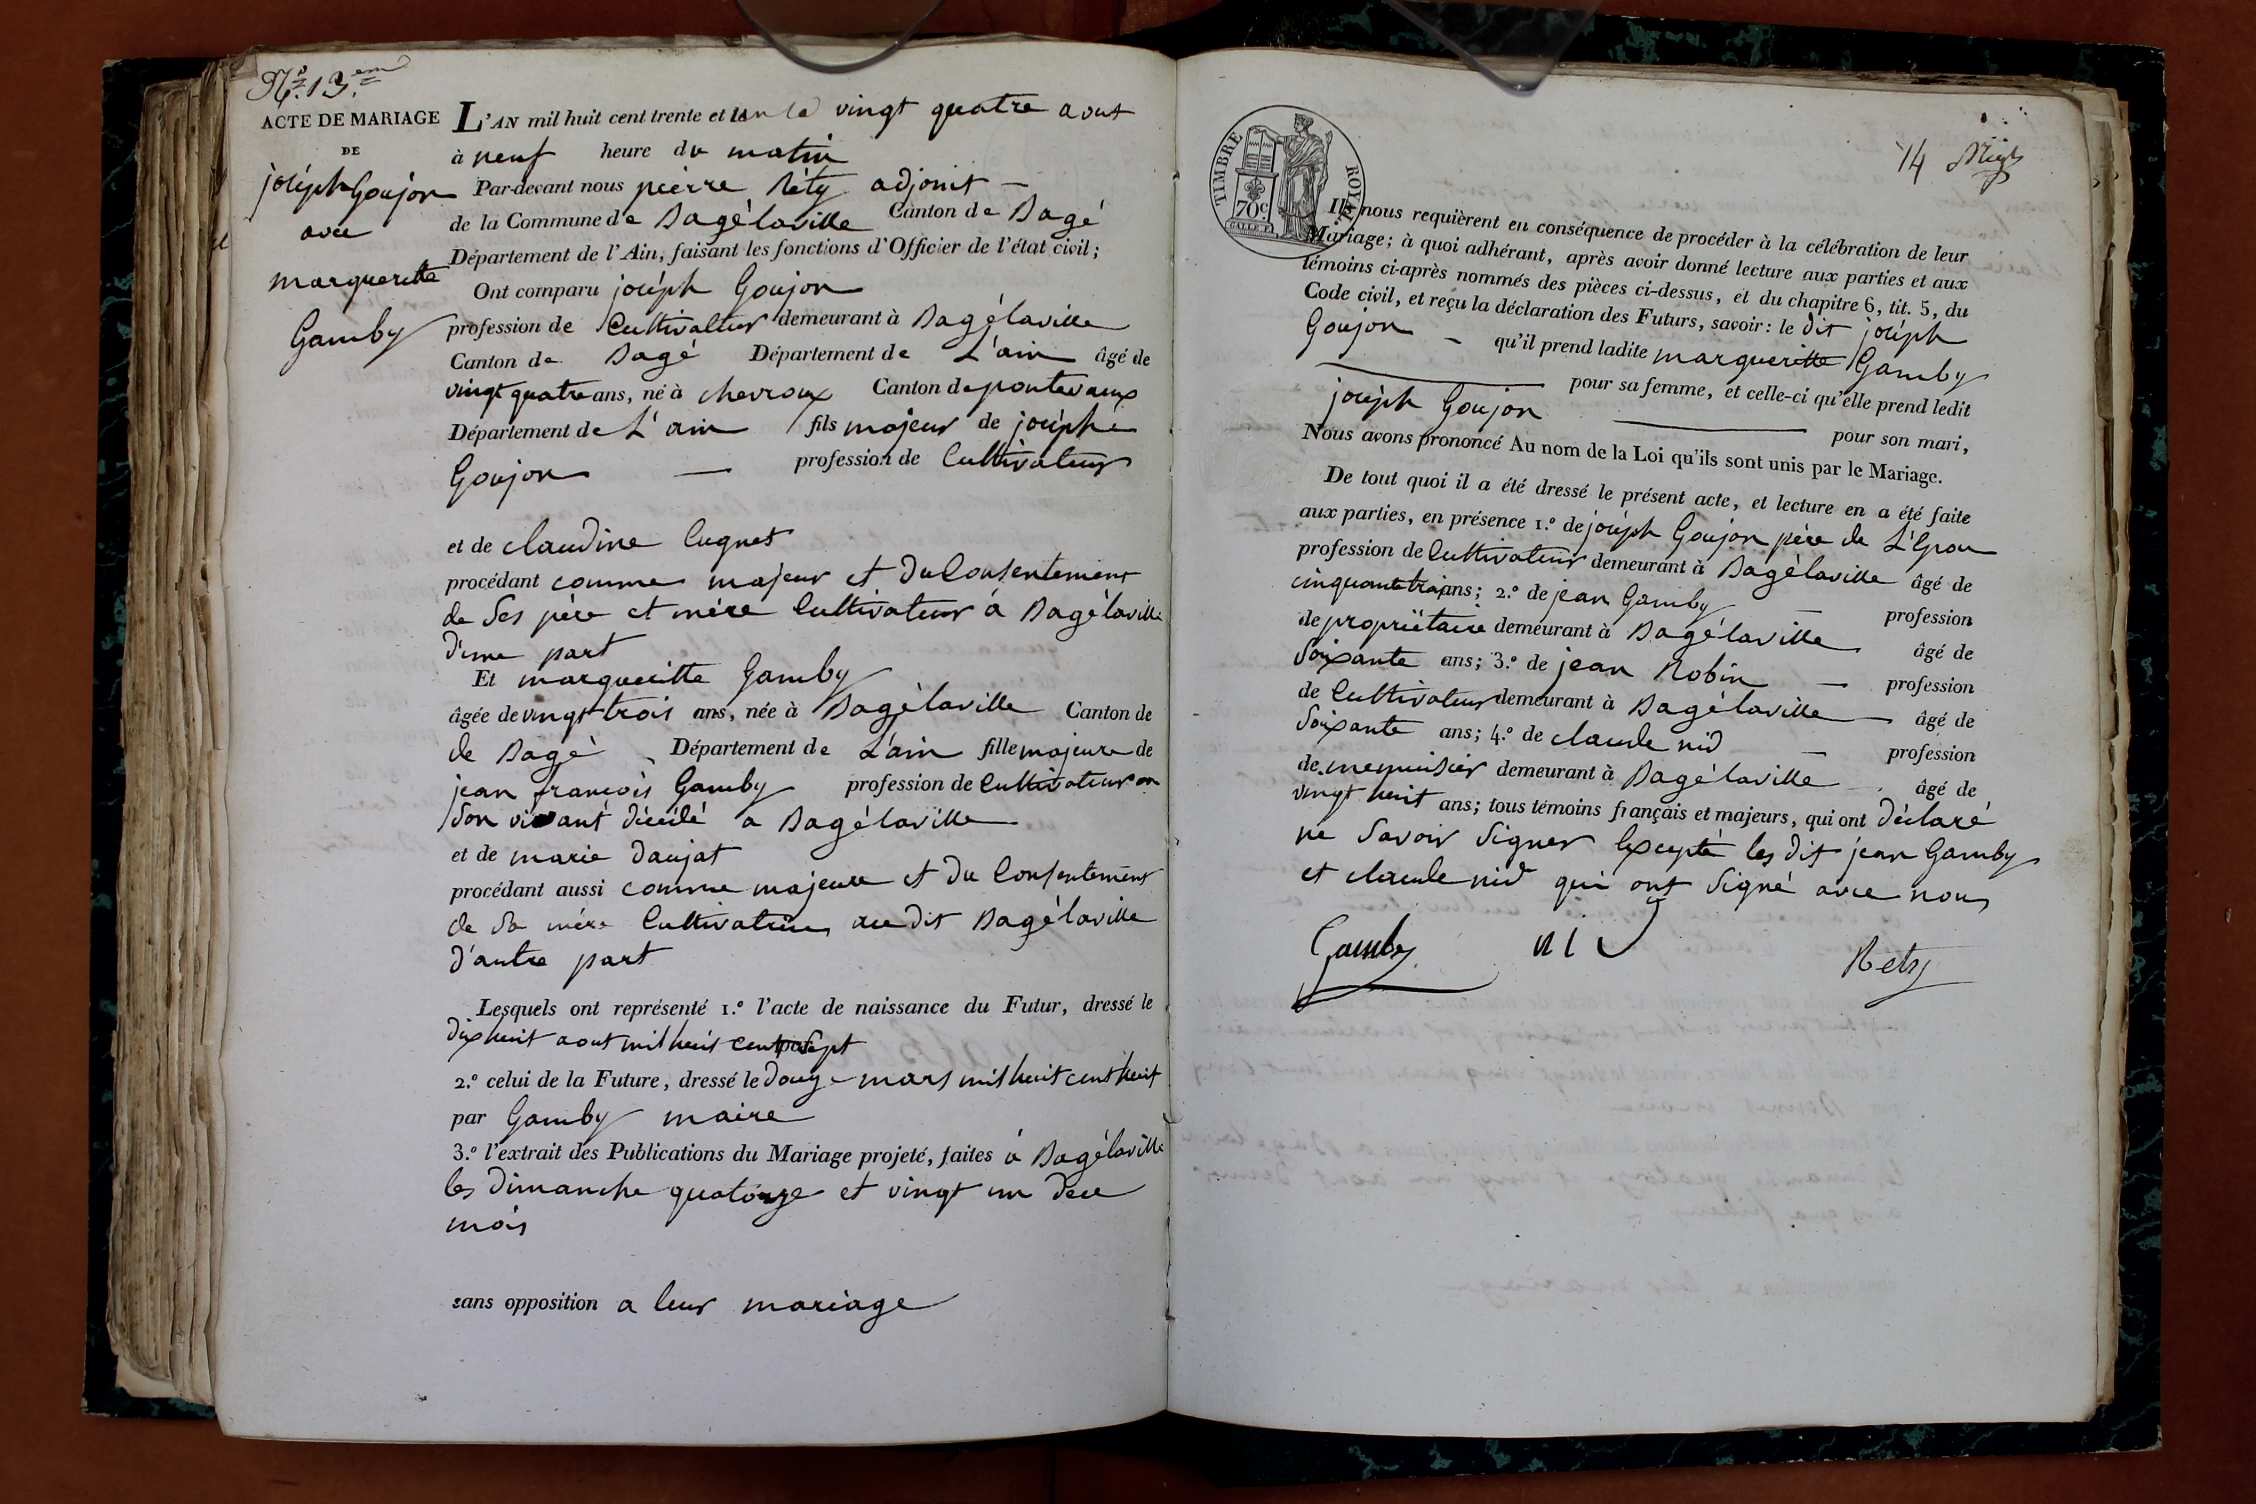 N.º 13.em
ACTE DE MARIAGE
DE
joséph Goujon
avec
margueritte
Gamby
L'AN mil huit cent trente et un le vingt quatre aout
à neuf heure du matin
Par-devant nous pierre Réty adjoint —
de la Commune de Bagélaville Canton de Bagé
Département de l'Ain, faisant les fonctions d'Officier de l'état civil;
Ont comparu joséph Goujon
profession de Cultivateur demeurant à Bagélaville
Canton de Bagé Département de L'ain âgé de
vingt quatre ans, né à chevroux Canton de pontevaux
Département de L'ain fils majeur de joséph
Goujon — profession de Cultivateur
et de claudine Cugnet
procédant comme majeur et du Consentement
de Ses père et mère Cultivateur à Bagélaville
d'une part
Et margueritte Gamby
âgée de vingt trois ans, née à Bagélaville Canton de
de Bagé Département de L'ain fille majeure de
jean françois Gamby profession de Cultivateur en
Son vivant décédé a Bagélaville
et de marie daujat
procédant aussi comme majeure et du Consentement
de Sa mère Cultivatrice au dit Bagélaville
d'autre part
Lesquels ont représenté 1.º l'acte de naissance du Futur, dressé le
dix huit aout mil huit cent Sept
2.º celui de la Future, dressé le douze mars mil huit cent huit
par Gamby maire
3.º l'extrait des Publications du Mariage projeté, faites à Bagélaville
les dimanche quatorze et vingt un dece
mois
sans opposition a leur mariage
14
TIMBRE ROYAL
70 c
Ils nous requièrent en conséquence de procéder à la célébration de leur
Mariage; à quoi adhérant, après avoir donné lecture aux parties et aux
témoins ci-après nommés des pièces ci-dessus, et du chapitre 6, tit. 5, du
Code civil, et reçu la déclaration des Futurs, savoir: le dit joséph
Goujon — qu'il prend ladite margueritte Gamby
pour sa femme, et celle-ci qu'elle prend ledit
joséph Goujon — pour son mari,
Nous avons prononcé Au nom de la Loi qu'ils sont unis par le Mariage.
De tout quoi il a été dressé le présent acte, et lecture en a été faite
aux parties, en présence 1.º de joséph Goujon père de L'Epou
profession de Cultivateur demeurant à Bagélaville âgé de
cinquante trois ans; 2.º de jean Gamby — profession
de propriétaire demeurant à Bagélaville âgé de
Soixante ans; 3.º de jean Robin — profession
de Cultivateur demeurant à Bagélaville — âgé de
Soixante ans; 4.º de claude nid — profession
de menuisier demeurant à Bagélaville âgé de
vingt huit ans; tous témoins français et majeurs, qui ont déclaré
ne Savoir Signer Excepté les dit jean Gamby
et claude nid qui ont Signé avec nous
Gamby nid Rety